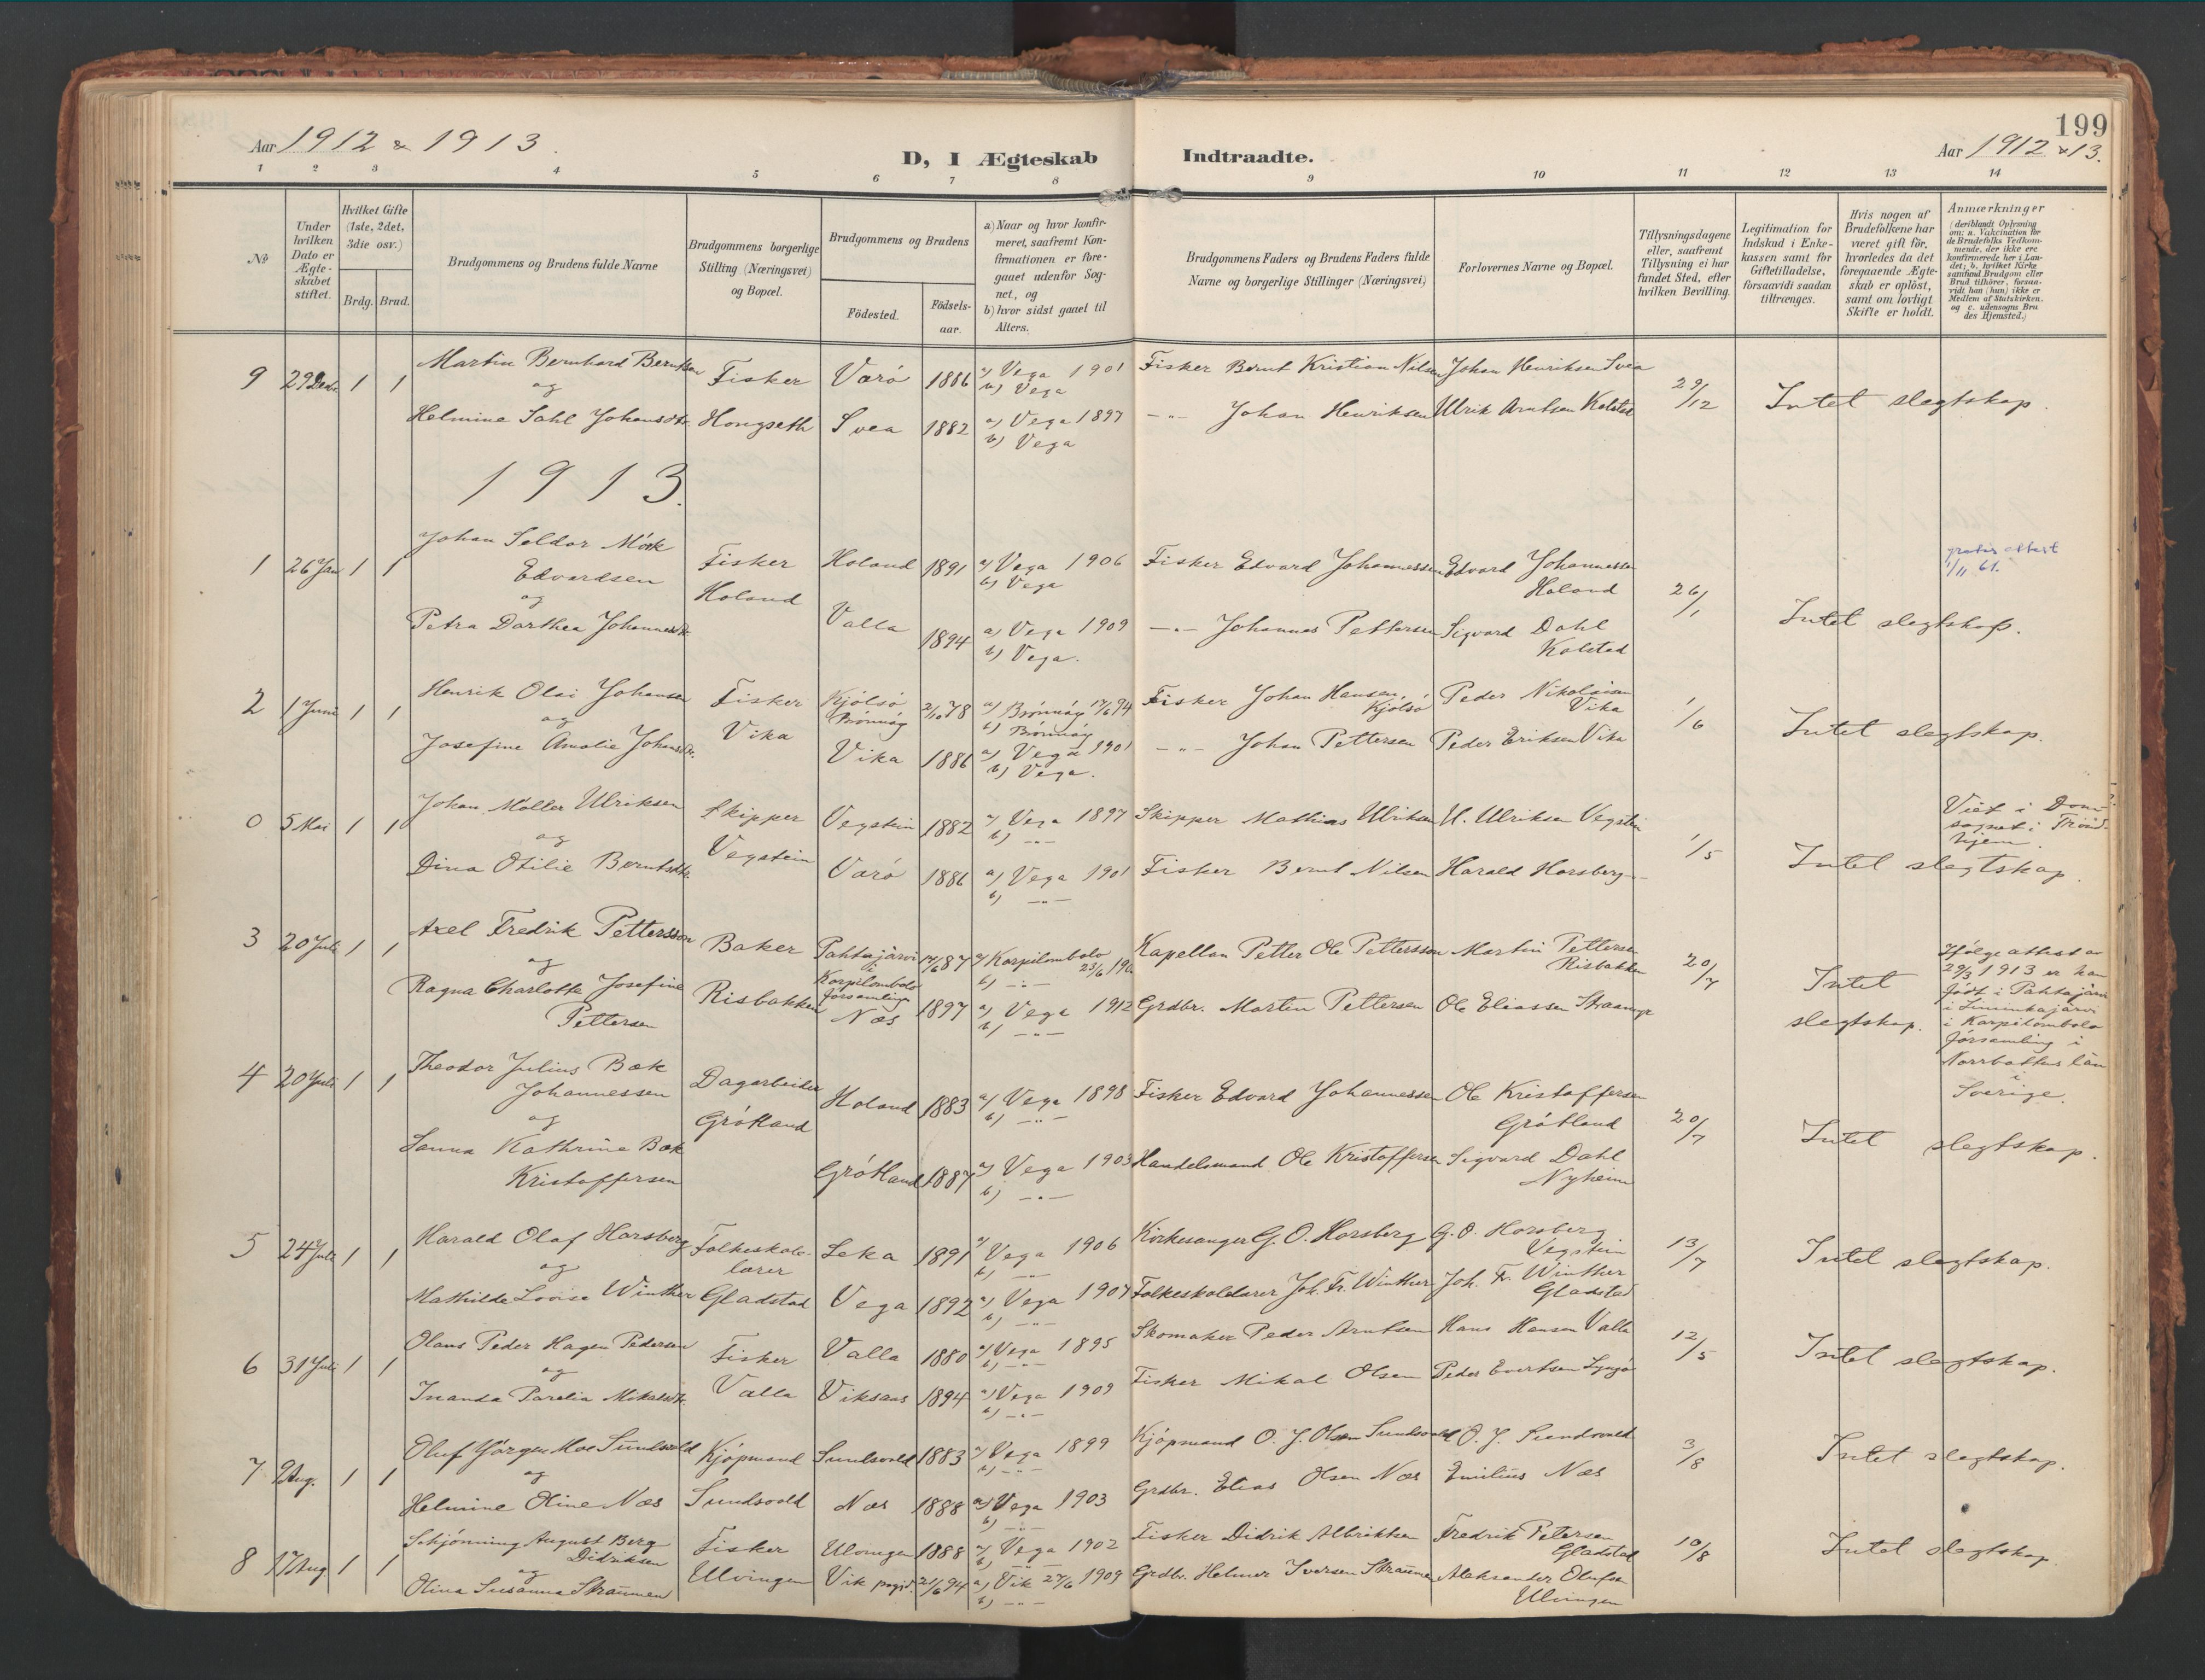 199
Aar 1912 & 1913.
D, I Ægteskab Indtraadte.
Aar 1912 & 13.
1 2 3 4 5 6 7 8 9 10 11 12 13 14
No
Under hvilken Dato er Ægteskabet stiftet.
Hvilket Gifte (1ste, 2det, 3die osv.)
Brdg. Brud.
Brudgommens og Brudens fulde Navne
Brudgommens borgerlige Stilling (Næringsvei) og Bopæl.
Brudgommens og Brudens
Födested.
Födsels-aar.
a) Naar og hvor konfirmeret, saafremt Konfirmationen er foregaaet udenfor Sognet, og
b) hvor sidst gaaet til Alters.
Brudgommens Faders og Brudens Faders fulde Navne og borgerlige Stillinger (Næringsvei)
Forlovernes Navne og Bopæl.
Tillysningsdagene eller, saafremt Tillysning ei har fundet Sted, efter hvilken Bevilling.
Legitimation for Indskud i Enkekassen samt for Giftetilladelse, forsaavidt saadan tiltrænges.
Hvis nogen af Brudefolkene har været gift för, hvorledes da det foregaaende Ægteskab er oplöst, samt om lovligt Skifte er holdt.
Anmærkninger
(deriblandt Oplysning om: a. Vakcination for de Brudefolks Vedkommende, der ikke ere konfirmerede her i Landet; b. hvilket Kirkesamfund Brudgom eller Brud tilhörer, forsaavidt han (hun) ikke er Medlem af Statskirken, og c. udensogns Brudes Hjemsted.)
9 29 Decbr. 1 1 Martin Bernhard Berntsen Fisker Varö 1886 a) Vega 1901 Fisker Bernt Kristian Nilsen Johan Henriksen Svea 29/12 Intet slegtskap.
og b) Vega
Helmine Dahl Johansdtr. Hongseth Svea 1882 a) Vega 1897 -"- Johan Henriksen Ulrik Arntsen Kolstad
b) Vega
1913.
1 26 Jan 1 1 Johan Seldor Mörk Fisker Holand 1891 a) Vega 1906 Fisker Edvard Johannessen Edvard Johannessen 26/1 Intet slegtskap. gratis attest
Edvardsen Holand b) Vega Holand 1/11 61.
og
Petra Dorthea Johannesdtr. Valla 1894 a) Vega 1909 -"- Johannes Pettersen Sigvard Dahl
b) Vega. Kolstad
2 1 Juni 1 1 Henrik Olai Johansen Fisker Kjölsö 2/10 78 a) Brönnöy 17/6 94 Fisker Johan Hansen, Kjölsö Peder Nikolaisen Vika 1/6 Intet slegtskap.
og Vika Brönnöy b) Brönnöy
Josefine Amalie Johansdtr. Vika 1886 a) Vega 1901 -"- Johan Pettersen Peder Eriksen Vika
b) Vega.
0 5 Mai 1 1 Johan Möller Ulriksen Skipper Vegstein 1882 a) Vega 1897 Skipper Mathias Ulriksen U. Ulriksen Vegstein 1/5 Intet slegtskap. Viet i Dom-
og Vegstein b) -"- sognet i Trond-
hjem.
Dina Otilie Berntsdtr. Varö 1886 a) Vega 1901 Fisker Bernt Nilsen Harald Horsberg
b) -"-
3 20 Juli 1 1 Axel Fredrik Pettersson Baker Pahtajärvi 14/6 87 a) Korpilombolo Kapellan Petter Ole Pettersson Martin Pettersen 20/7 Intet Ifölge attest av
og i b) -"- Risbakken slegtskap. 29/3 1913 er han
Ragna Charlotte Josefine Risbakken Korpilombolo född i Pahtajärvi
Pettersen församling i Korpilombolo
Næs 1897 a) Vega 1912 Grdbr. Martin Pettersen Ole Eliassen församling i
b) -"- Norrbottens län
i
Sverige.
4 20 Juli 1 1 Theodor Julius Bæk Dagarbeider Holand 1883 a) Vega 1898 Fisker Edvard Johannessen Ole Kristoffersen 20/7 Intet slegtskap.
Johannessen Grötland b) -"- Grötland
og
Sanna Kathrine Bæk Grötland 1887 a) Vega 1903 Handelsmand Ole Kristoffersen Sigvard Dahl
Kristoffersen b) -"- Nyheim
5 24 Juli 1 1 Harald Olaf Horsberg Folkeskole- Leka 1891 a) Vega 1906 Kirkesanger G. O. Horsberg G. O. Horsberg 13/7 Intet slegtskap.
og lærer b) -"- Vegstein
Mathilde Lovise Winther Gladstad Vega 1892 a) Vega 1907 Folkeskolelærer Joh. Fr. Winther Joh. Fr. Winther
b) -"- Gladstad
6 31 Juli 1 1 Olaus Peder Hagen Pedersen Fisker Valla 1880 a) Vega 1895 Skomaker Peder Arntsen Hans Hansen Valla 12/5 Intet slegtskap.
og b) -"-
Inanda Parelia Mikalsdtr. Valla Viksaas 1894 a) Vega 1909 Fisker Mikal Olsen Peder Evertsen
b) -"-
7 9 Aug. 1 1 Oluf Jörgen Moe Sundsvold Kjöpmand Sundsvold 1883 a) Vega 1899 Kjöpmand O. J. Olsen Sundsvold O. J. Sundsvold 3/8 Intet slegtskap.
og b) -"-
Helmine Oline Næs Sundsvold Næs 1888 a) Vega 1903 Grdbr. Elias Olsen Næs Emilius Næs
b) -"-
8 17 Aug 1 1 Schjönning August Berg Fisker Ulvingen 1888 a) Vega 1902 Fisker Didrik Albriktsen Fredrik Petersen 10/8 Intet slegtskap.
Didriksen b) -"- Gladstad
og
Olina Susanna Straumen Ulvingen Vik pgjd. 21/6 94 a) Vik 27/6 1909 Grdbr. Helmer Iversen Straumen Aleksander Olufsen
b) -"- Ulvingen